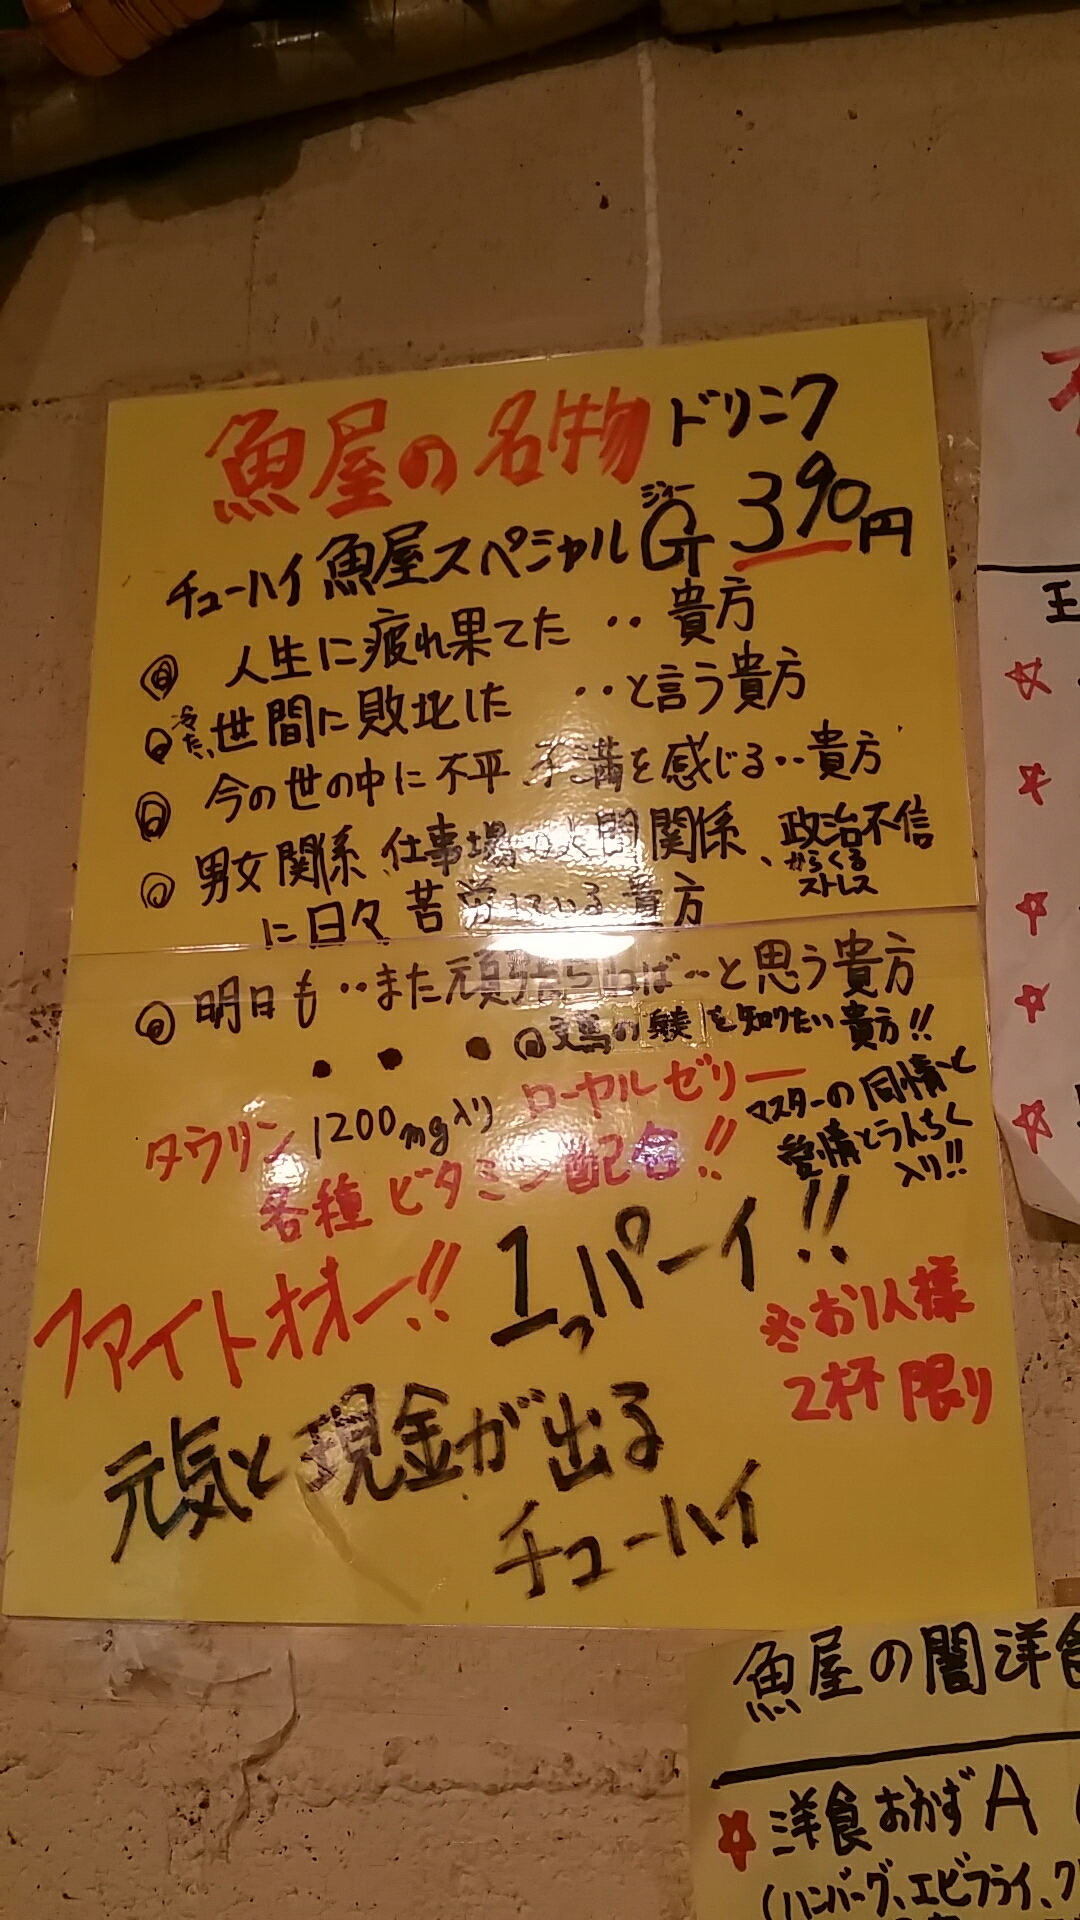 魚屋の名物ドリンク
チューハイ魚屋スペシャルG 390円
ジィー
◎ 人生に疲れ果てた ‥貴方
◎ 冷たい世間に敗北した ‥と言う貴方
◎ 今の世の中に不平不満を感じる‥貴方
◎ 男女関係、仕事場の人間関係、政治不信
からくる
ストレス
に日々苦労している貴方
◎ 明日も‥また頑張らねば‥と思う貴方
● ● ● ◎ を知りたい貴方!!
タウリン1200mg入り ローヤルゼリー
各種ビタミン配合!!
マスターの同情と
愛情とうんちく
入り!!
ファイトオオー!! 1っパーイ!!
※お1人様
2杯限り
元気と現金が出る
チューハイ
王
魚屋の闇洋食
☆洋食おかずA
(ハンバーグ、エビフライ、ク